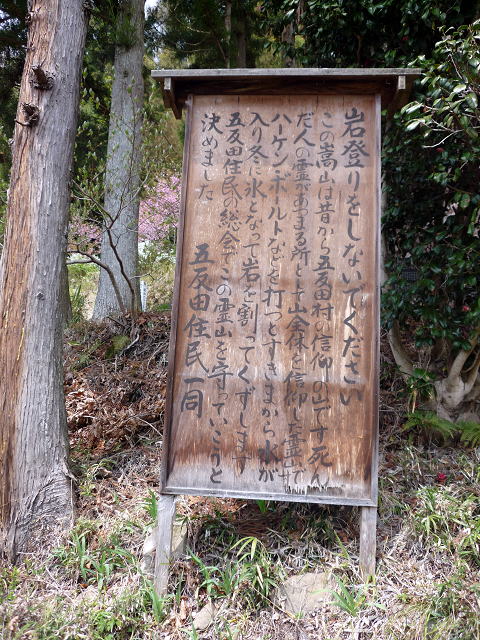 岩登りをしないでください
この嵩山は昔から五反田村の信仰の山です死ん
だ人の霊があつまる所として山全体を信仰した霊山です
ハーケン・ボールトなどを打つとすきまから水が
入り冬に氷となって岩を割ってくずします
五反田住民の総会でこの霊山を守っていこうと
決めました
五反田住民一同